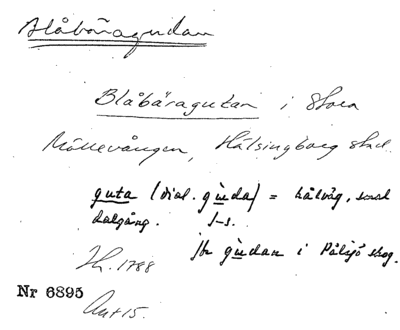 Blåbäragudan
Blåbäragutan i Stora
Möllevången, Hälsingborg stad.
guta (dial. gùda) = hålväg, smal
dalgång. J-s.
Jfr gùdan i Pålsjö skog.
H. 1788
Nr 6895
Ant 15.